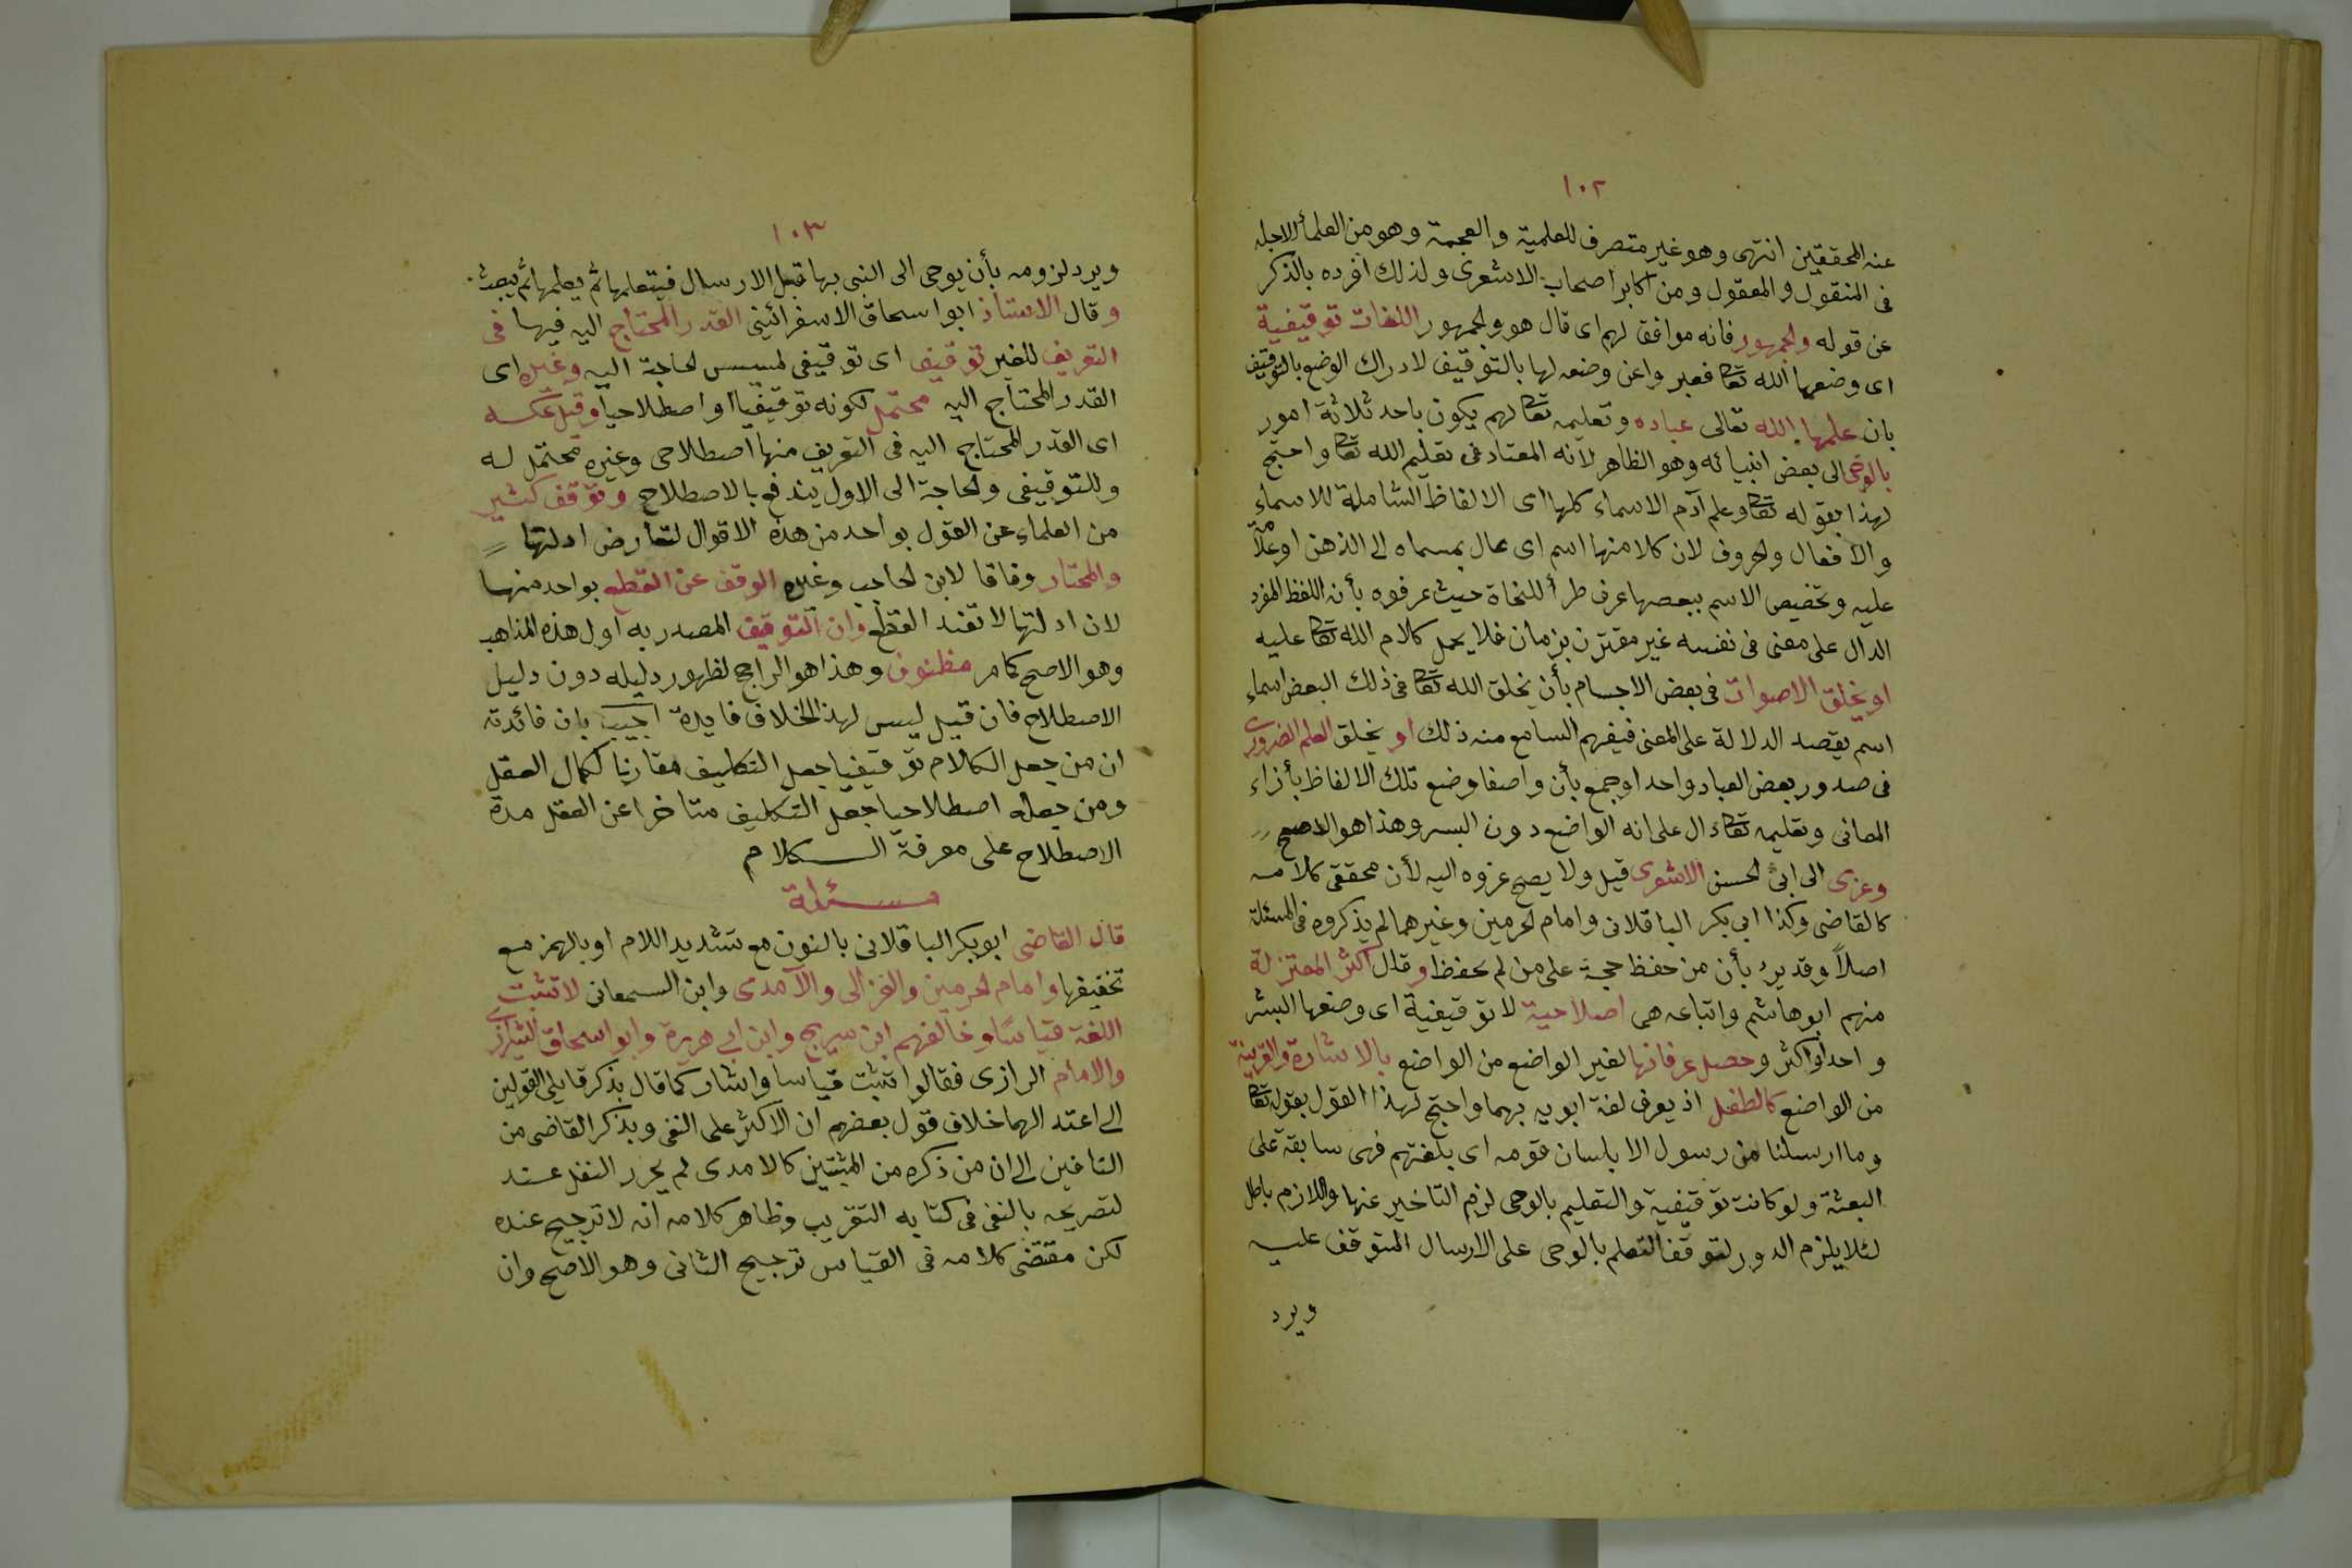 ١٠٢
عنه المحققين انتهى وهو غير متصرف للعلمية والعجمة وهو من العلمأ الاجله
فى المنقول والمعقول ومن اكابر اصحاب الاشعرى ولذلك افرده بالذكر
عن قوله والجمهور فانه موافق لهم اى قال هو والجمهور اللغات توقيفية
اى وضعها الله تعا فعبروا عن وضعه لها بالتوقيف لادراك الوضع بالتوقيف
بان علمها الله تعالى عباده وتعليمه تعا لهم يكون باحد ثلاثة امور
بالوحى الى بعض انبيائه وهو الظاهر لانه المعتاد فى تعليم الله تعا واحتج
لهذا بقوله تعا وعلم آدم الاسماء كلها اى الالفاظ الشاملة للاسماء
والافعال والحروف لان كلا منها اسم اى عال بمسماه الى الذهن او علامة
عليه وتخصيص الاسم ببعصها عرف طرأ للنحاة حيث عرفوه بأنه اللفظ المفرد
الدال على معنى فى نفسه غير مقترن بزمان فلا يحمل كلام الله تعا عليه
او يخلق الاصوات فى بعض الاجسام بأن يخلق الله تعا فى ذلك البعض اسماء
اسم يقصد الدلالة على المعنى فيفهم السامع منه ذلك او يخلق العلم الضرورى
فى صدور بعض العباد واحد او جمع بأن واصفا وضع تلك الالفاظ بأزاء
المعانى وتعليمه تعا دال على انه الواضع دون البسر وهذا هو الاصح
وعزى الى ابى الحسن الاشعرى قيل ولا يصح عزوه اليه لأن محققى كلامه
كالقاضى وكذا ابى بكر الباقلانى وامام الحرمين وغيرهما لم يذكروه فى المسئلة
اصلاً وقد يرد بأن من حفظ حجة على من لم يحفظ وقال اكثر المعتزلة
منهم ابو هاشم واتباعه هى اصلاحية لا توقيفية اى وضعها البشر
واحدا او اكثر وحصل عرفانها لغير الواضع من الواضع بالاشارة والقرينة
من الواضع كالطفل اذ يعرف لغة ابويه بهما واحتج لهذا القول بقوله تعا
وما ارسلنا من رسول الا بلسان قومه اى بلغتهم فهى سابقة على
البعثة ولو كانت توقيفية والتعليم بالوحى لزم التاخير عنها واللازم باطل
لئلا يلزم الدور لتوقف التعلم بالوحى على الارسال المتوقف عليه
ويرد
١٠٣
ويرد لزومه بأن يوحى الى النبى بها قبل الارسال فيتعلمها ثم يعلمها ثم يبعث
وقال الاستاذ ابو اسحاق الاسفرائينى القدر المحتاج اليه فيها فى
التعريف للغير توقيف اى توقيفى لمسيس الحاجة اليه وغيره اى
القدر المحتاج اليه محتمل لكونه توقيفياً او اصطلاحيا وقيل عكسه
اى القدر المحتاج اليه فى التعريف منها اصطلاحى وغيره محتمل له
وللتوقيفى والحاجة الى الاول يندفع بالاصطلاح وتوقف كثير
من العلماء عن القول بواحد من هذه الاقوال لتعارض ادلتها
والمختار وفاقا لابن الحاجب وغيره الوقف عن القطع بواحد منها
لان ادلتها لا تفند القطع وان التوقيف المصدر به اول هذه المذاهب
وهو الاصح كما مر مظنون وهذا هو الراجح لظهور دليله دون دليل
الاصطلاح فان قيل ليس لهذا الخلاف فايدة اجيب بان فائدته
ان من جعل الكلام توقيفيا جعل التكليف مقارنا لكمال العقل
ومن جعله اصطلاحيا جعل التكليف متاخرا عن العقل مدة
الاصطلاح على معرفة الــكلام
مســئلة
قال القاضى ابو بكر الباقلانى بالنون مع تشديد اللام او بالهمز مع
تخفيفها وامام الحرمين والغزالى والآمدى وابن السمعانى لا تثبت
اللغة قياسًا وخالفهم ابن سريج وابن ابى هريرة وابو اسحاق الشيرازى
والامام الرازى فقالوا تثبت قياسا واشار كما قال بذكر قايلى القولين
الى اعتد الهما خلاف قول بعضهم ان الاكثر على النفى وبذكر القاضى من
النافين الى ان من ذكره من المثبتين كالامدى لم يحرر النقل عنه
لتصريحه بالنفى فى كتابه التقريب وظاهر كلامه انه لا ترجيح عنده
لكن مقتضى كلامه فى القياس ترجيح الثانى وهو الاصح وان